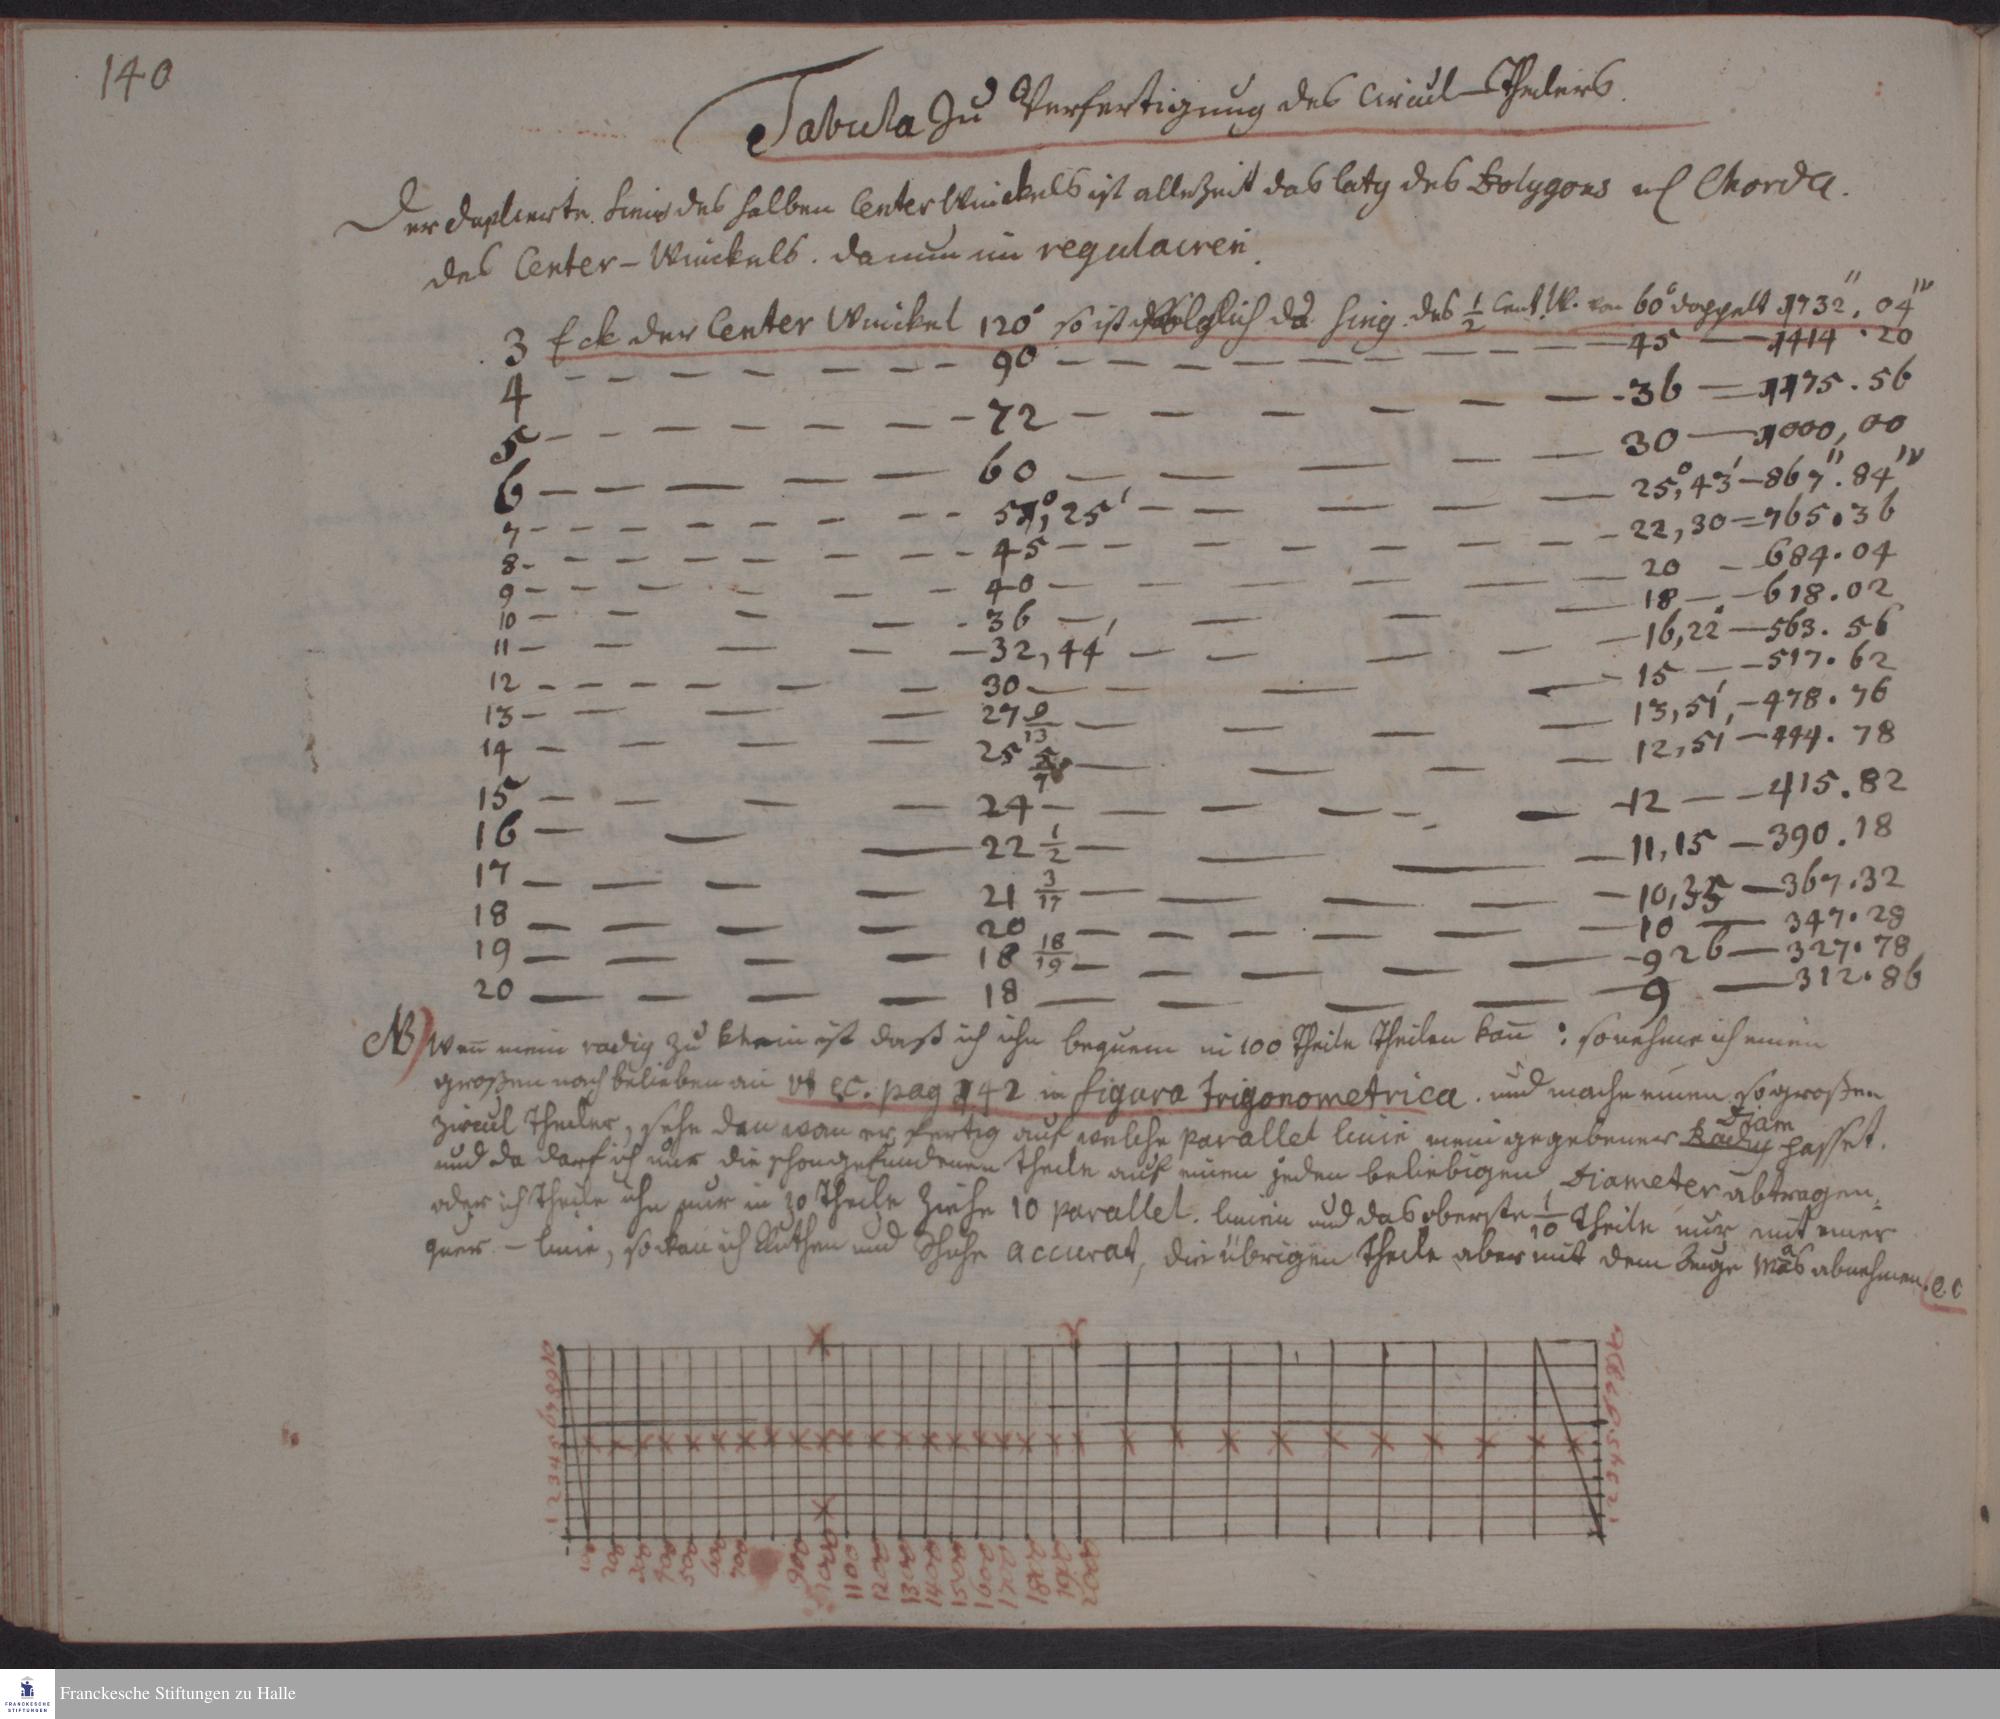 140
Tabula Zu Verfertigung des Circul-Theilers.
Der duplierte Sinus des halben Center Winckels ist allezeit das latq des Polygons u Chorda.
des Center-Winckels. darum im regulairen.
3 Eck der Center Winckel 120° so ist folglich da Sinq. des 1/2 Cent. W. von 60° doppelt 1732'', 04''''
4 - - - 90 - - - 45 - 1414 . 20
5 - - - 72 - - - 36 - 1175 . 56
6 - - - 60 - - - 30 - 1000, 00
7 - - - 51°, 25' - - - 25°, 43' - 867''. 84''''
8 - - - 45 - - - 22, 30 = 765. 36
9 - - - 40 - - - 20 - 684. 04
10 - - - 36 - - - 18 - 618. 02
11 - - - 32, 44' - - - 16, 22 - 563. 56
12 - - - 30 - - - 15 - 517. 62
13 - - - 27 9/13 - - - 13, 51' - 478. 76
14 - - - 25 5/7 - - - 12, 51 - 444. 78
15 - - - 24 - - - 12 - 415. 82
16 - - - 22 1/2 - - - 11, 15 - 390. 18
17 - - - 21 3/17 - - - 10, 35 - 367. 32
18 - - - 20 - - - 10 - 347. 28
19 - - - 18 18/19 - - - 9 26 - 327. 78
20 - - - 18 - - - 9 - 312. 86
NB) Wenn mein radiq zu klein ist daß ich ihn bequem in 100 Theile Theilen kan : so nehme ich einen
großen nach belieben an pag 142 in figura trigonometrica. und mache einen so großen
Zircul Theiler, sehe dan wan er fertig auf welche parallel linie mein gegebener Radiq Diam passet.
und da darf ich nur die schon gefundenen Theile auf einen jeden beliebigen Diameter abtragen.
oder ich Theile ihn nur in 20 Theile ziehe 10 parallel. linien und das oberste 1/10 Theile nur mit einer
quer-linie, so kan ich Ruthen und Schuhe accurat, die übrigen Theile aber mit dem Auge Mas abnehmen. e.c
1 2 3 4 5 6 7 8 9 10
1 2 3 4 5 6 7 8 9
100 200 300 400 500 600 700 900 1000 1100 1200 1300 1400 1500 1600 1700 1800 1900 2000
FRANCKESCHE STIFTUNGEN
Franckesche Stiftungen zu Halle